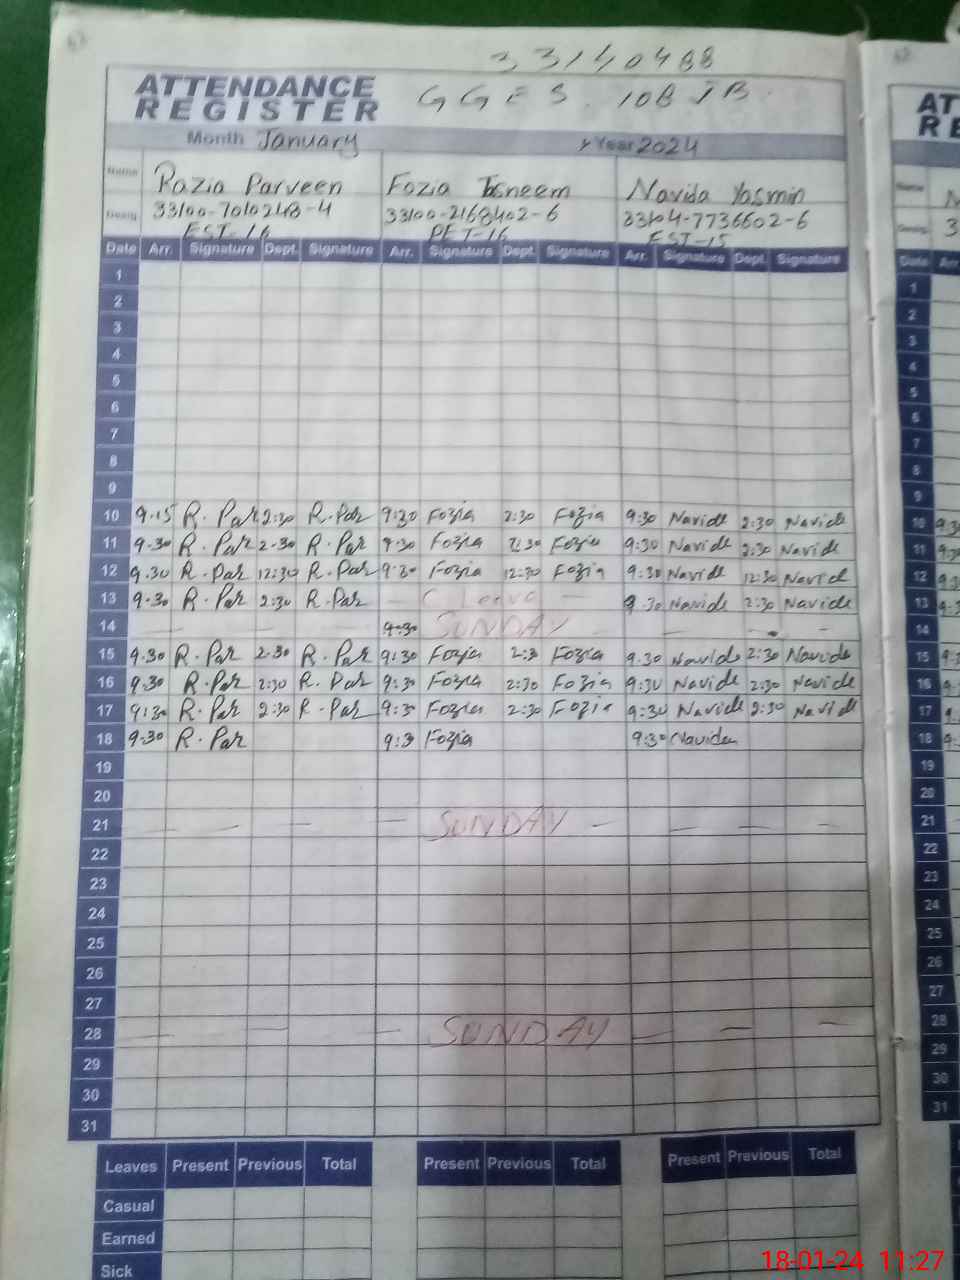 33140488
ATTENDANCE GGES. 108 JB
REGISTER
Month January Year 2024
Name Razia Parveen Fozia Tasneem Navida Yasmin
Desig. 33100-7010248-4 33100-2168402-6 33104-7736602-6
EST-16 PET-16 EST-15
Date Arr. Signature Dept. Signature Arr. Signature Dept. Signature Arr. Signature Dept. Signature
1
2
3
4
5
6
7
8
9
10 9.15 R.Par 2:30 R.Par 9:30 Fozia 2:30 Fozia 9:30 Navide 2:30 Navide
11 9.30 R.Par 2.30 R.Par 9:30 Fozia 2:30 Fozia 9:30 Navide 2:30 Navide
12 9.30 R.Par 12:30 R.Par 9:30 Fozia 12:30 Fozia 9:30 Navide 12:30 Navid
13 9.30 R.Par 2:30 R.Par — C Leave — 9.30 Navide 2:30 Navide
14 — — — 9:30 SUNDAY — — —
15 9.30 R.Par 2.30 R.Par 9:30 Fozia 2:3 Fozia 9.30 Navide 2:30 Navide
16 9:30 R.Par 2:30 R.Par 9:30 Fozia 2:30 Fozia 9:30 Navide 2:30 Navide
17 9:30 R.Par 2:30 R.Par 9:3 Fozia 2:30 Fozia 9:30 Navide 2:30 Navide
18 9:30 R.Par 9:3 Fozia 9:30 Navida
19
20
21 — — — — SUNDAY — — — —
22
23
24
25
26
27
28 — — — SUNDAY — — —
29
30
31
Leaves Present Previous Total Present Previous Total Present Previous Total
Casual
Earned
Sick
AT
RE
Date Arr
1
2
3
4
5
6
7
8
9
10
11
12
13
14
15
16
17
18
19
20
21
22
23
24
25
26
27
28
29
30
31
18-01-24 11:27